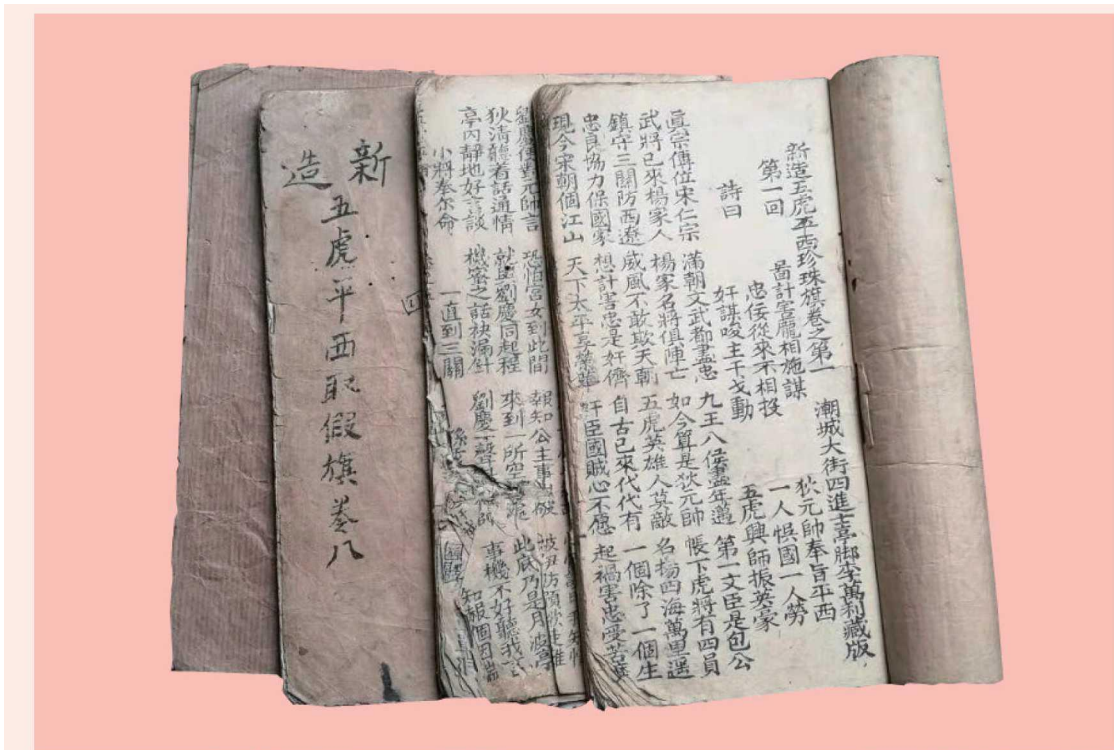 新造五虎平西珍珠旗卷之第一 潮城大街四進士亭脚李萬利藏版
第一回 啚計害龐相施謀 狄元帥奉旨平西
忠佞從來不相投 一人悞國一人勞
詩曰 奸謀唆主干戈動 五虎興師振英豪
眞宗傳位宋仁宗 滿朝文武都盡忠 九王八侯盡年邁 第一文臣是包公
武將已來楊家人 楊家名將俱陣亡 如今算是狄元帥 帳下虎將有四員
鎮守三關防西遼 威風不敢欺天朝 五虎英雄人莫敵 名揚四海萬里遥
忠良協力保國家 想計害忠是奸儕 自古已來代代有 一個除了一個生
現今宋朝個江山 天下太平享榮華 奸臣國賊心不愿 起禍害忠受苦
劉慶 元帥言 恐怕宮女到此間 報知公主事 破
狄清聽着話通情 就與劉慶同起程 來到一所空 此 乃是月波亭
亭内靜地好言談 機密之話袂漏針 劉慶一聲 事機不好聽我
小將奉尔命 一直到三關 知報個因端
新造
五虎平西取假旗卷八